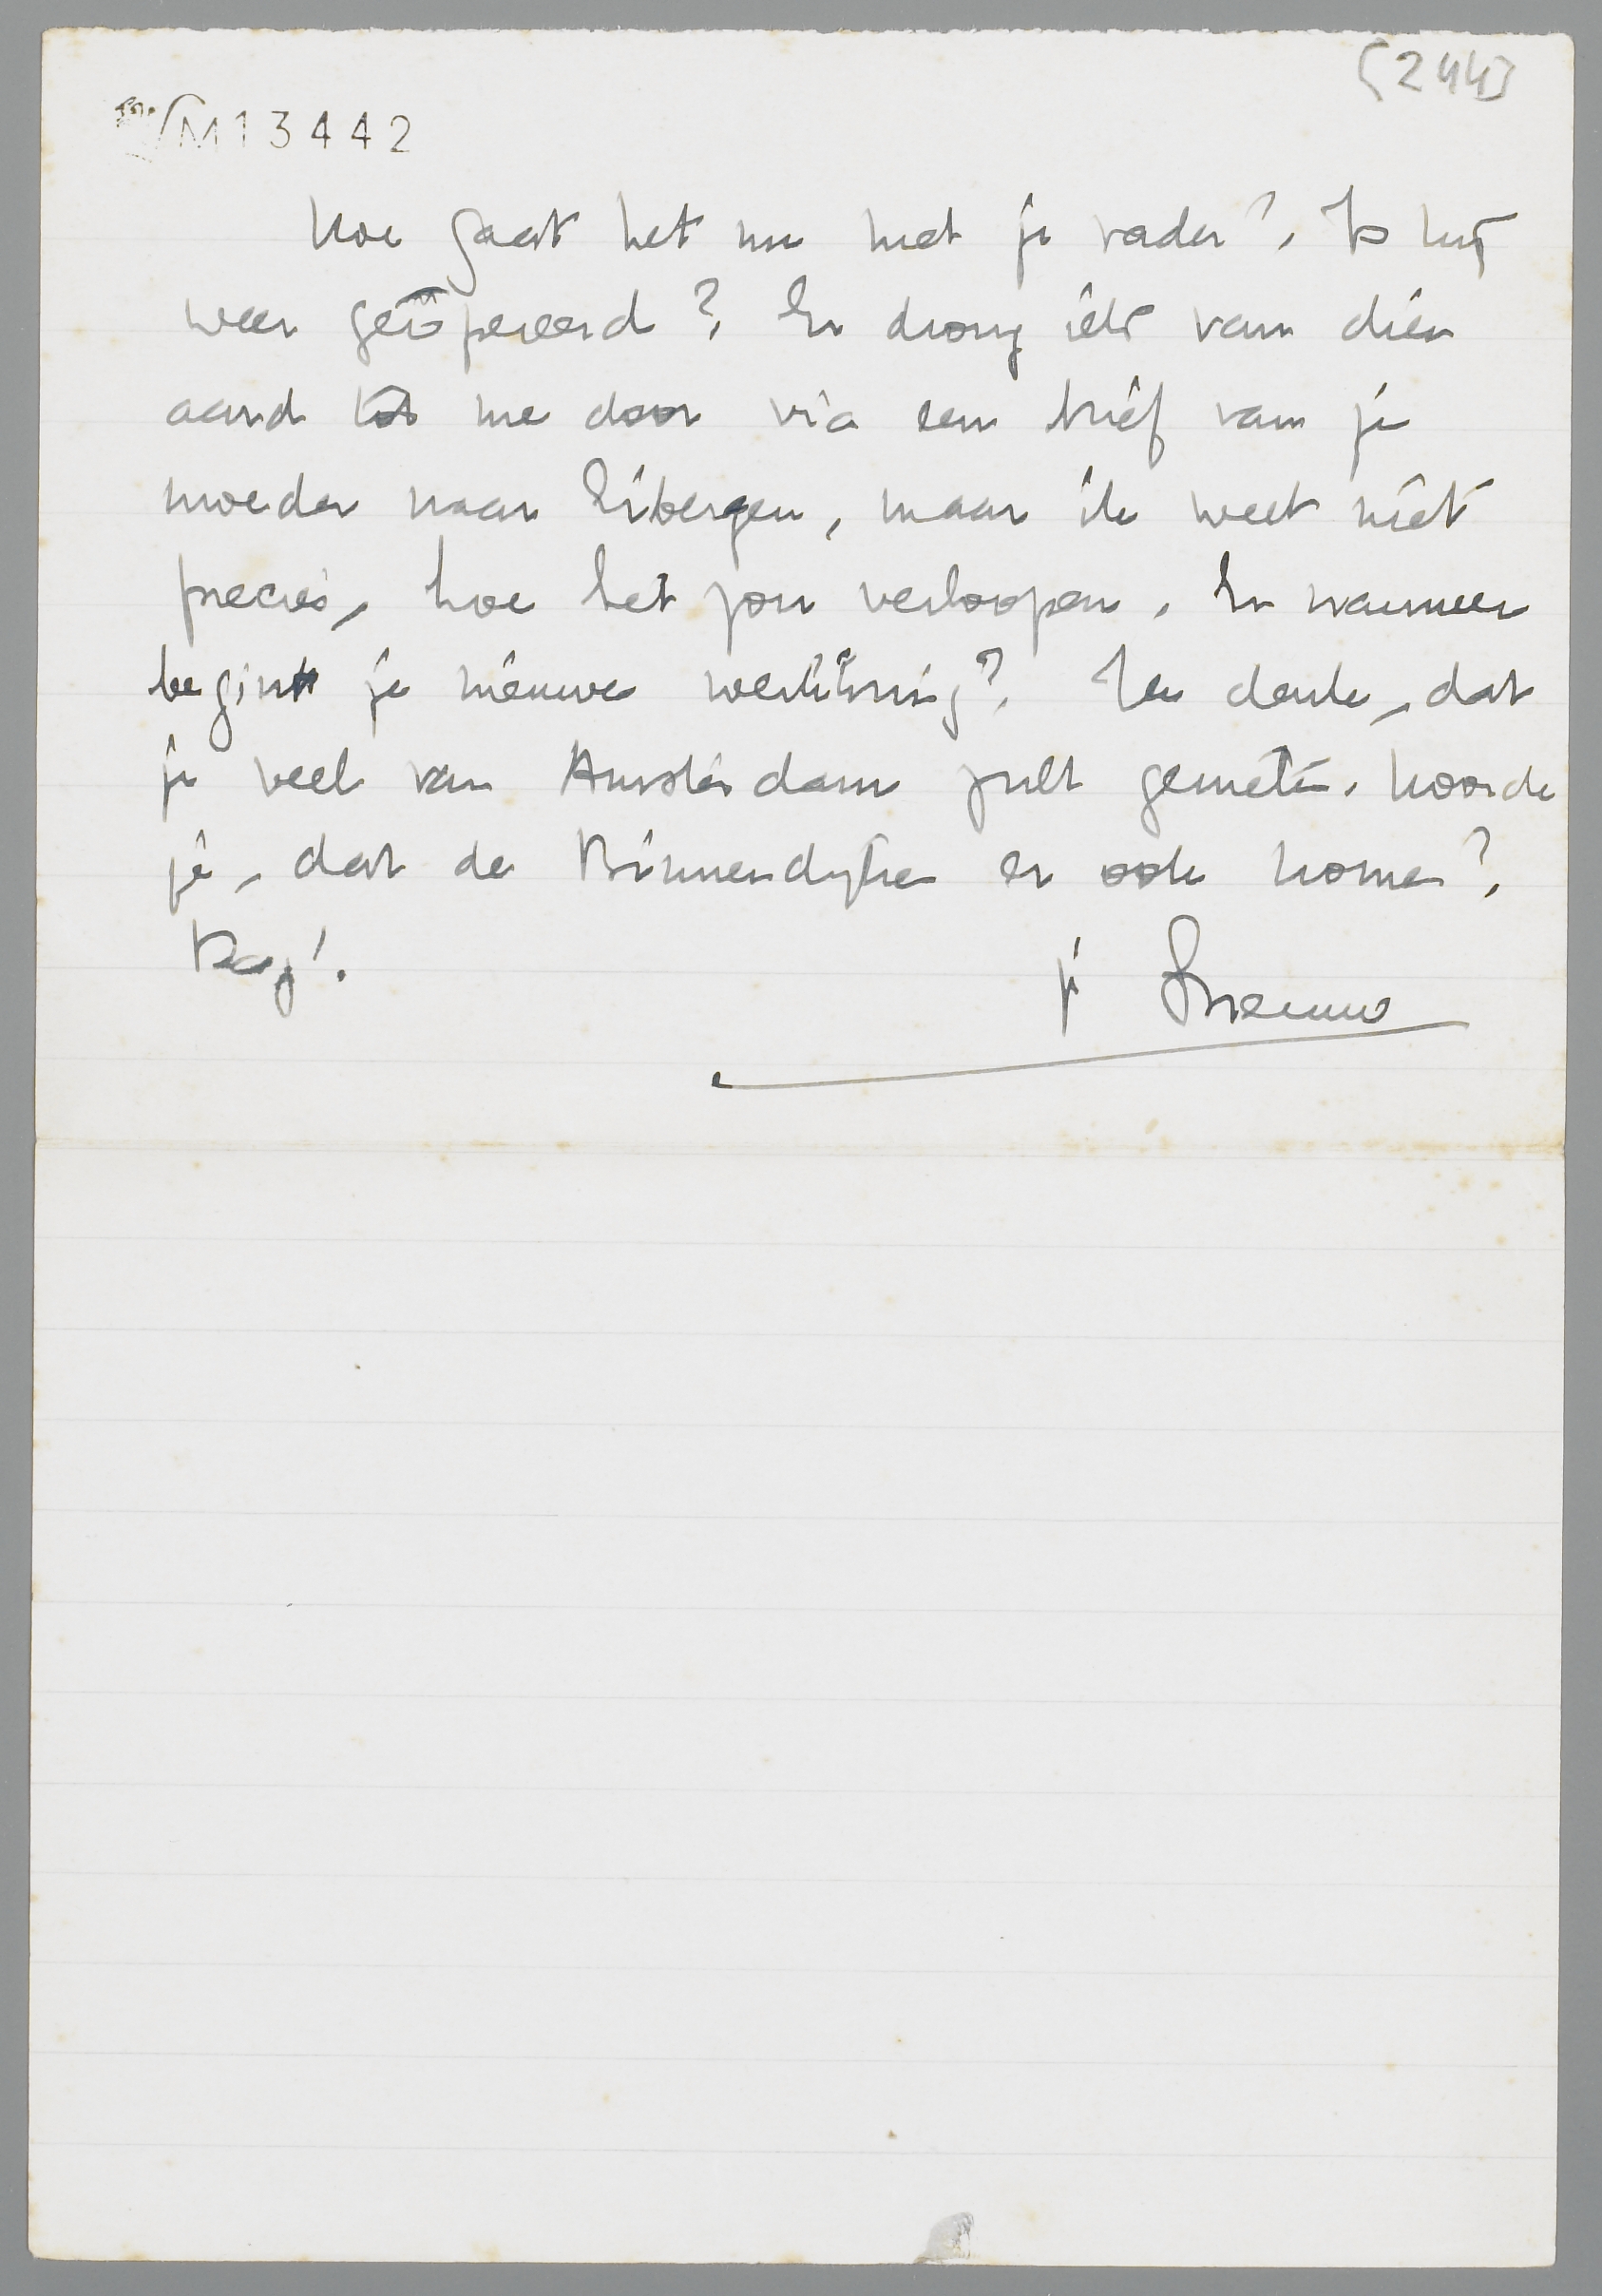 [244]
M13442
Hoe gaat het nu met je vader? Is hij
weer geopereerd? Er drong iets van dien
aard tot me door via een brief van je
moeder naar Eibergen, maar ik weet niet
precies, hoe het zou verloopen. En wanneer
begint je nieuwe werkkring? Ik denk, dat
je veel van Amsterdam zult genieten. Hoorde
je, dat de Binnendijken er ook komen?
Dag!
je